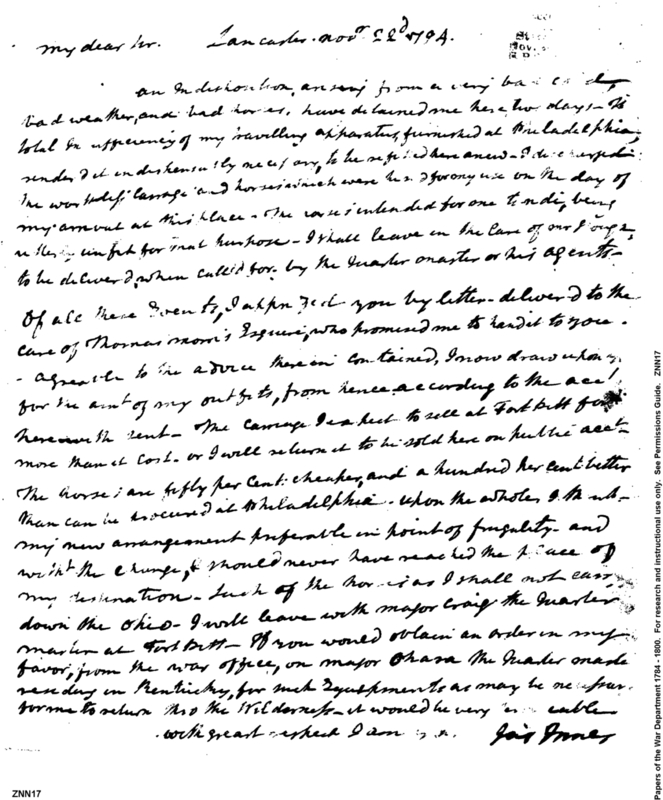 my dear Sir. Lancaster. novr 22d 1794.
an Indisposition, arising from a very bad cold,
bad weather, and bad horses, have detained me here two days - The
total Insufficiency of my travelling apparatus, furnished at Philadelphia,
render'd it indispensably necessary, to be refitted here anew - I discharged
the worthless Carriage and horses which were hired for my use on the day of
my arrival at this place - The intended for one being
utterly unfit for that purpose - I shall leave in the Care of our
to be deliver'd, when call'd for, by the Quarter master or his agents -
Of all these Events, I apprized you by letter - deliver'd to the
care of Thomas morris Esquire, who promised me to hand it to you -
- agreeable to the advice therein contained, I now draw upon
for the amt of my outfits, from hence according to the acct
herewith sent - The Carriage I expect to sell at Fort Pitt for
more than it Cost - or I will return it to be sold here on public acct -
The horses are fifty per Cent: cheaper, and a hundred per cent better
than can be procured at Philadelphia - upon the whole I think
my new arrangement preferable in point of frugality - and
witht the change, I should never have reached the place of
my destination - Such of the horses as I shall not carry
down the Ohio - I will leave with major Craig the Quarter
master at Fort Pitt - If you would obtain an order in my
favor, from the war office, on major Ohara the Quarter
residing in Kentucky, for such Equipments as may be necessary
for me to return thro the Wilderness - it would be very
with great respect I am Jas Innes
ZNN17
Papers of the War Department 1784 - 1800. For research and instructional use only. See Permissions Guide. ZNN17